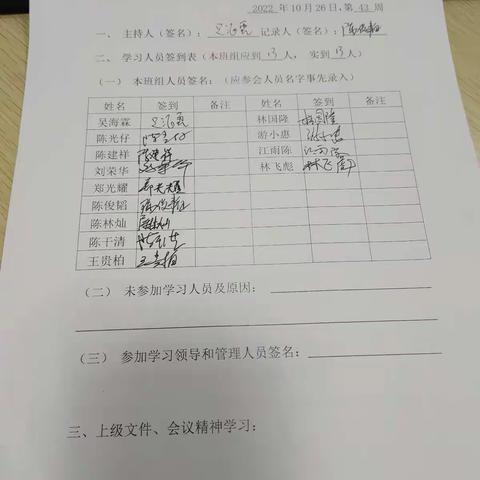 2022 年 10 月 26 日，第 43 周
一、主持人（签名）：吴海霖 记录人（签名）：陈俊韬
二、学习人员签到表（本班组应到 13 人， 实到 13 人）
（一）本班组人员签名：（应参会人员名字事先录入）
姓名 签到 备注 姓名 签到 备注
吴海霖 吴海霖 林国隆 林国隆
陈光仔 陈光仔 游小惠 游小惠
陈建祥 陈建祥 江雨陈 江雨陈
刘荣华 刘荣华 林飞彪 林飞彪
郑光耀 郑光耀
陈俊韬 陈俊韬
陈林灿 陈林灿
陈干清 陈干清
王贵柏 王贵柏
（二） 未参加学习人员及原因：
（三） 参加学习领导和管理人员签名：
三、上级文件、会议精神学习：